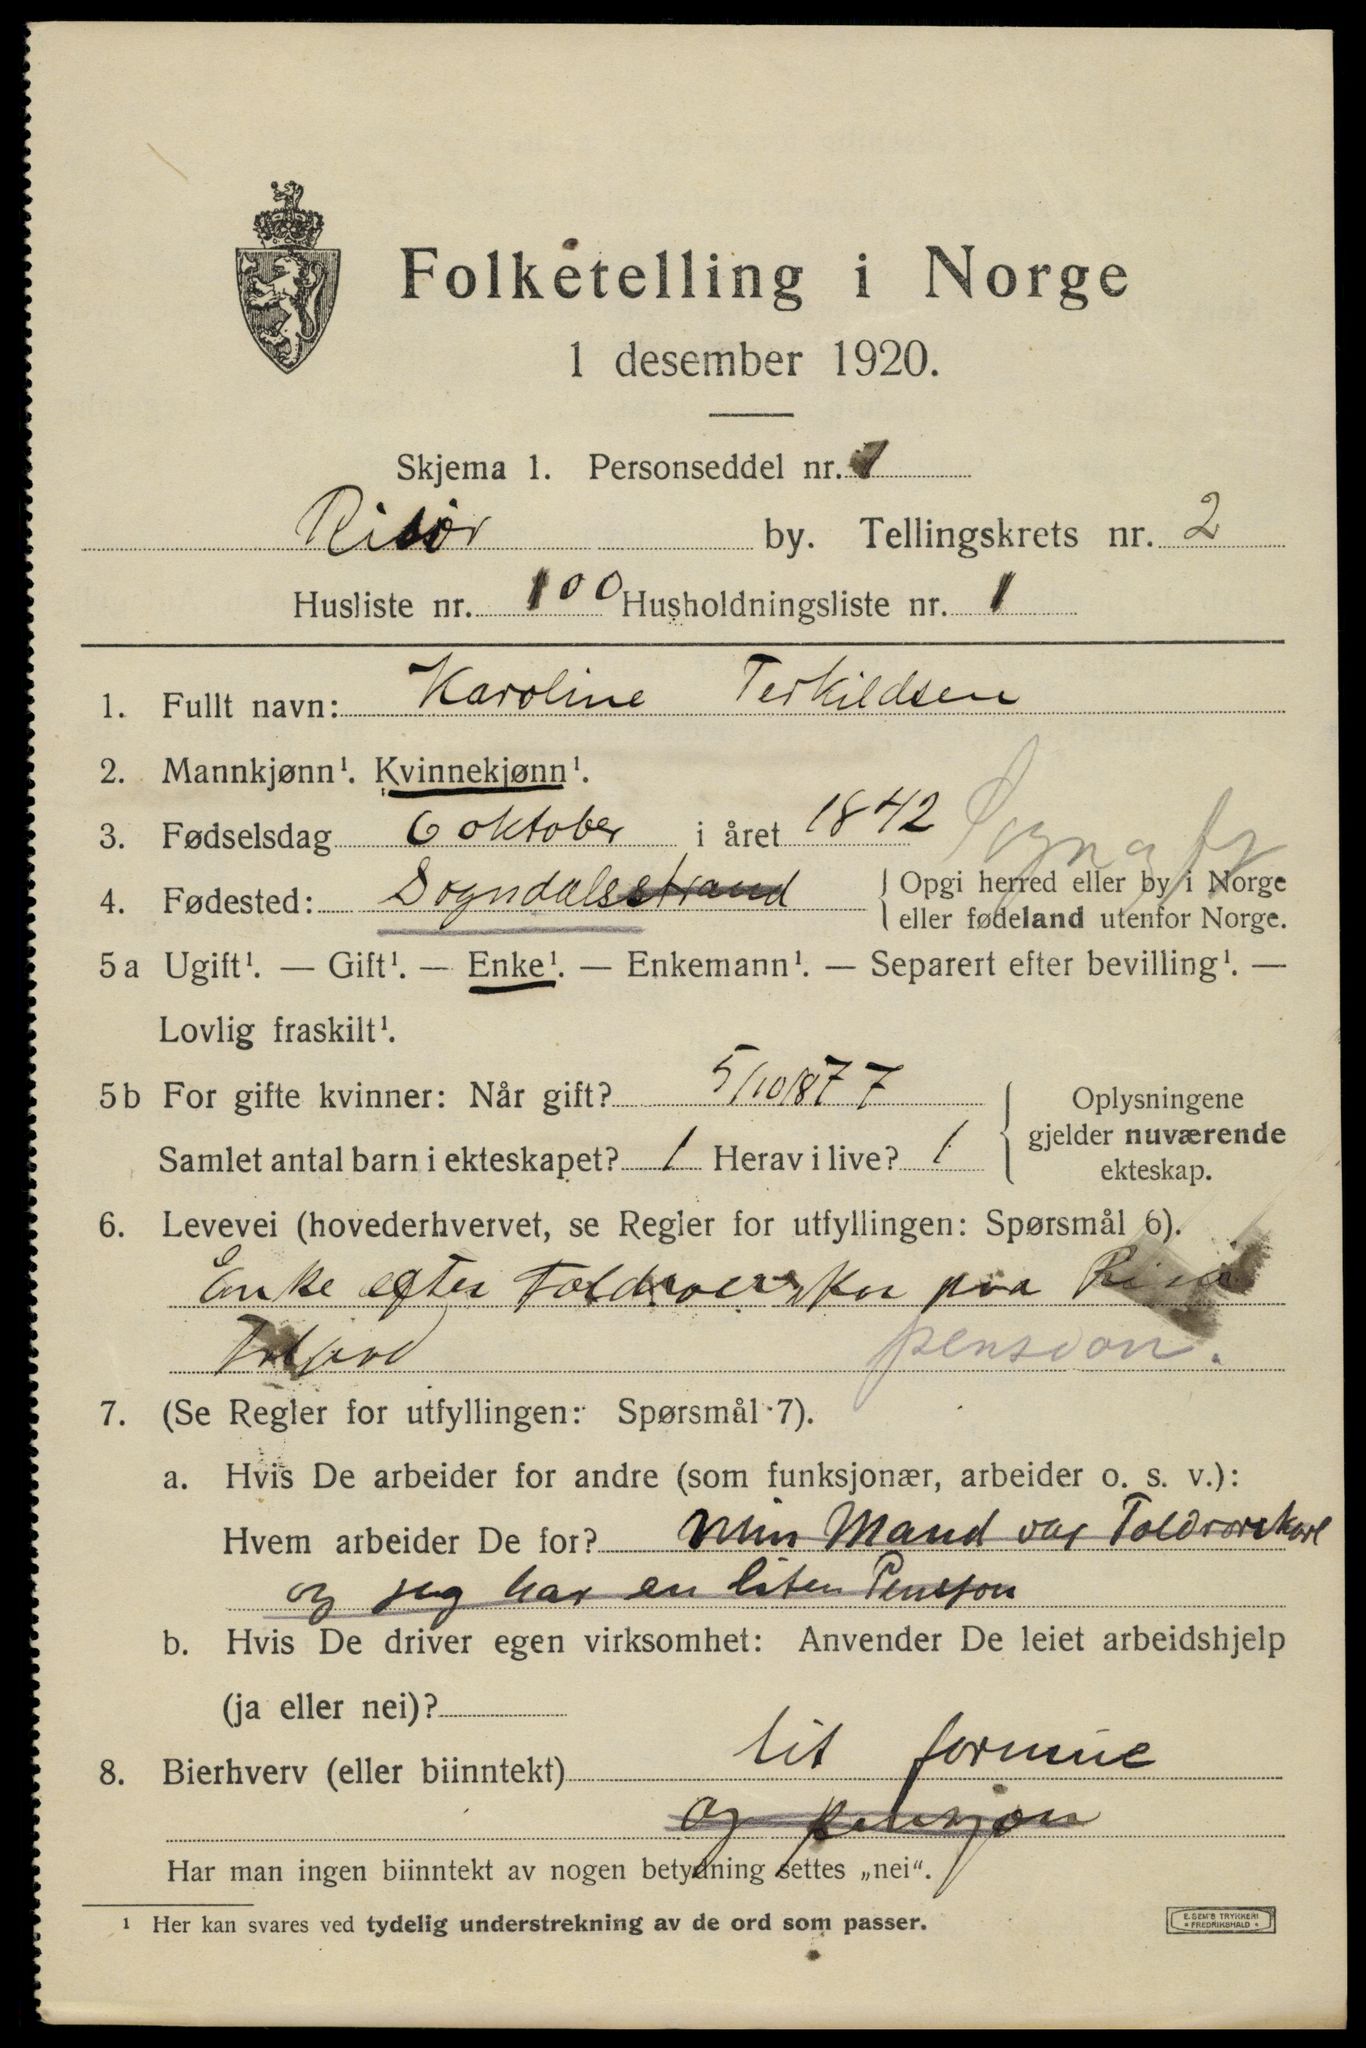 Folketelling i Norge
1 desember 1920.
Skjema 1. Personseddel nr. 1
Risör by. Tellingskrets nr. 2
Husliste nr. 100 Husholdningsliste nr. 1
1. Fullt navn: Karoline Terkildsen
2. Mannkjønn¹. Kvinnekjønn¹.
3. Fødselsdag 6 oktober i året 1842
4. Fødested: Sogndalsstrand { Opgi herred eller by i Norge
eller fødeland utenfor Norge.
5 a Ugift¹. — Gift¹. — Enke¹. — Enkemann¹. — Separert efter bevilling¹. —
Lovlig fraskilt¹.
5 b For gifte kvinner: Når gift? 5/10/877
Samlet antal barn i ekteskapet? 1 Herav i live? 1
{ Oplysningene
gjelder nuværende
ekteskap.
6. Levevei (hovederhvervet, se Regler for utfyllingen: Spørsmål 6).
Enke efter Toldroerskar paa
pension.
7. (Se Regler for utfyllingen: Spørsmål 7).
a. Hvis De arbeider for andre (som funksjonær, arbeider o. s. v.):
Hvem arbeider De for? Min Mand var Toldrorskarl
og jeg har en liten Pension
b. Hvis De driver egen virksomhet: Anvender De leiet arbeidshjelp
(ja eller nei)?
8. Bierhverv (eller biinntekt) lit formue
og pensjon
Har man ingen biinntekt av nogen betydning settes „nei“.
¹ Her kan svares ved tydelig understrekning av de ord som passer.
E. SEM'S TRYKKERI
* FREDRIKSHALD *